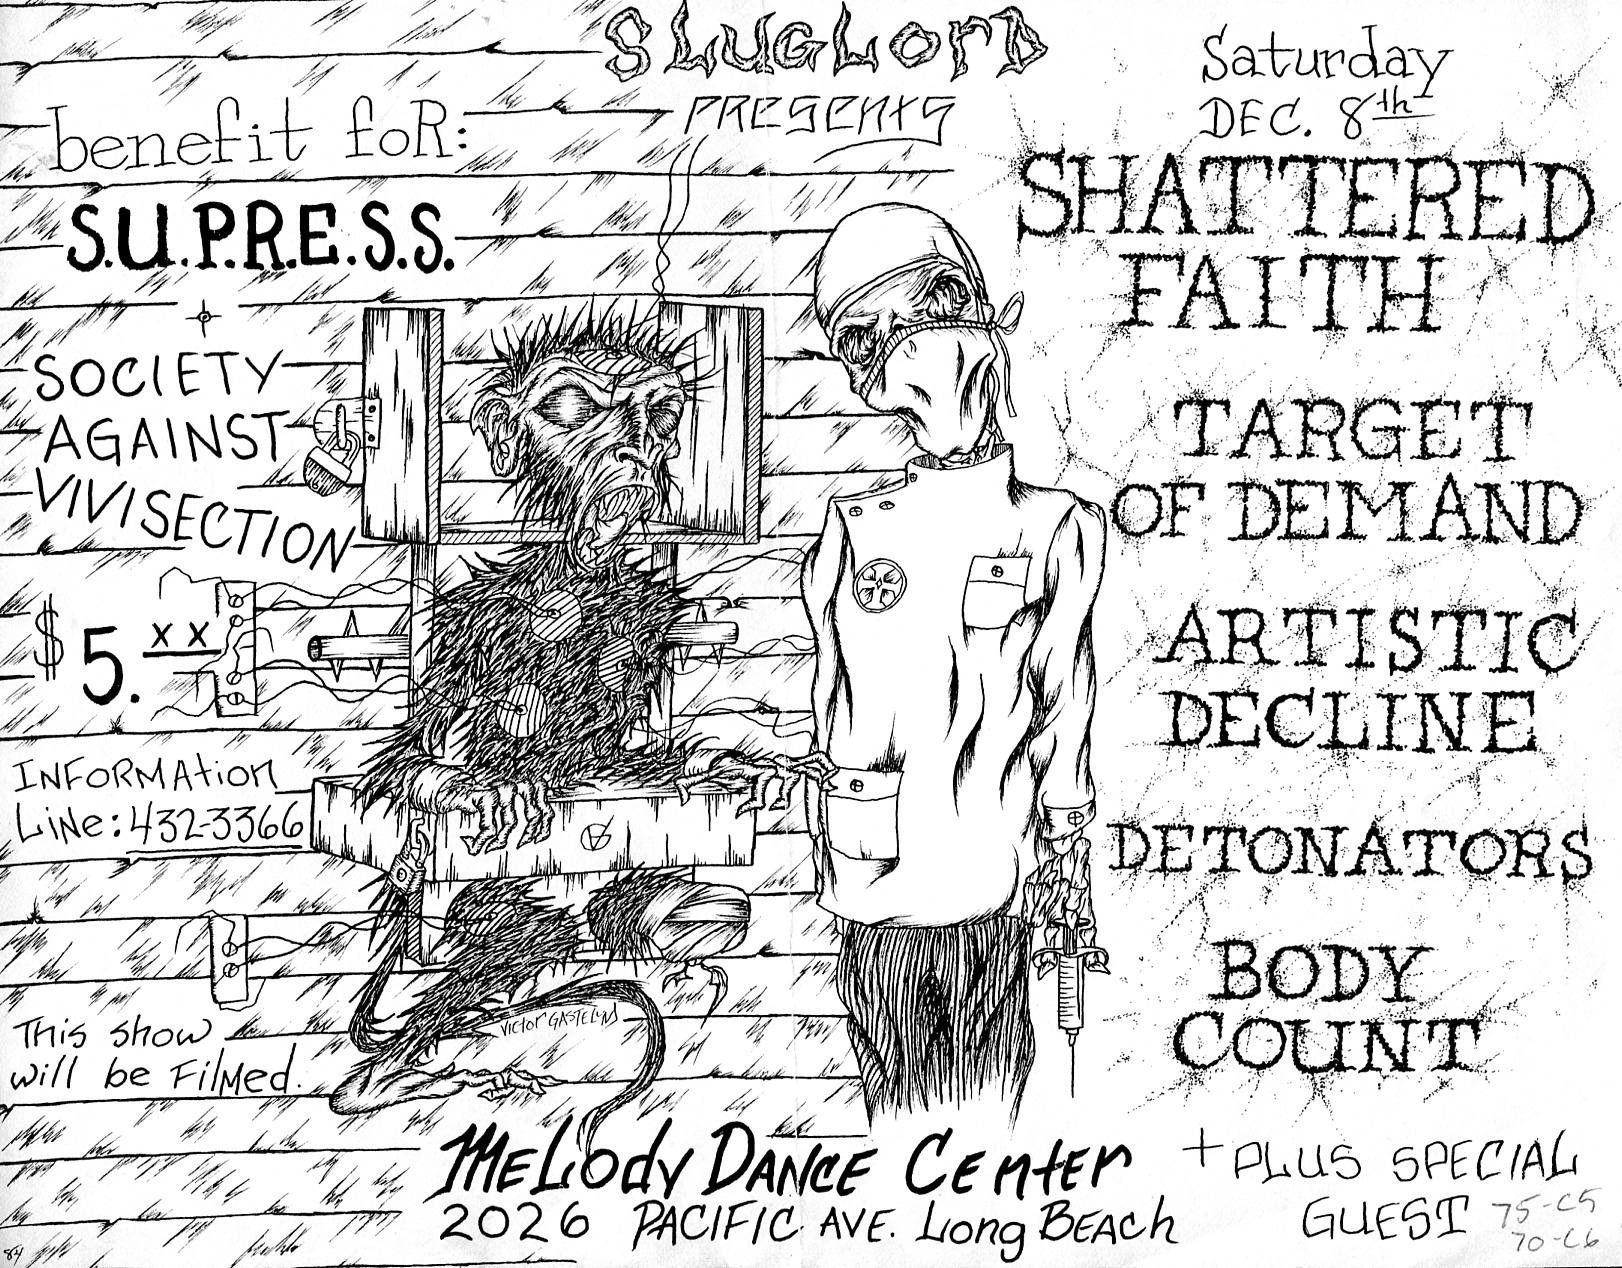 SLUGLORD
PRESENTS
benefit foR:
S.U.P.R.E.S.S.
SOCIETY
AGAINST
VIVISECTION
$5.xx
INFORMAtion
Line: 432-3366
This show
will be Filmed.
VICTOR GASTELUM
Saturday
DEC. 8th
SHATTERED
FAITH
TARGET
OF DEMAND
ARTISTIC
DECLINE
DETONATORS
BODY
COUNT
+PLUS SPECIAL
GUEST
MeLody DANCE Center
2026 PACIFIC AVE. Long BEACh
75-C5
70-C6
84